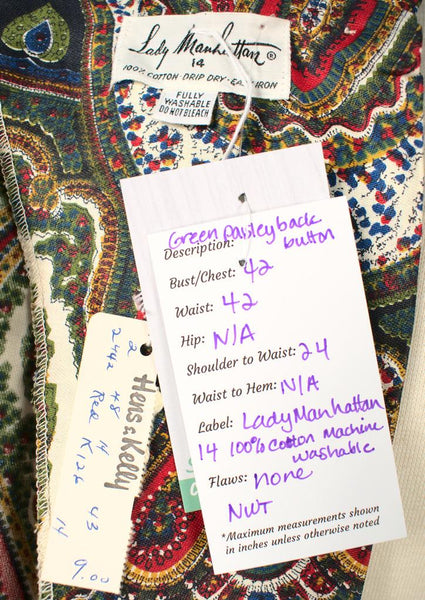 Lady Manhattan®
14
100% COTTON · DRIP DRY · EASY IRON
FULLY
WASHABLE
DO NOT BLEACH
Green paisley back
Description: button
Bust/Chest: 42
Waist: 42
Hip: N/A
Shoulder to Waist: 24
Waist to Hem: N/A
Label: Lady Manhattan
14 100% cotton Machine
washable
Flaws: none
NWT
*Maximum measurements shown
in inches unless otherwise noted
Hens & Kelly
2
2442
48 14
Red K126
43
14
9.00